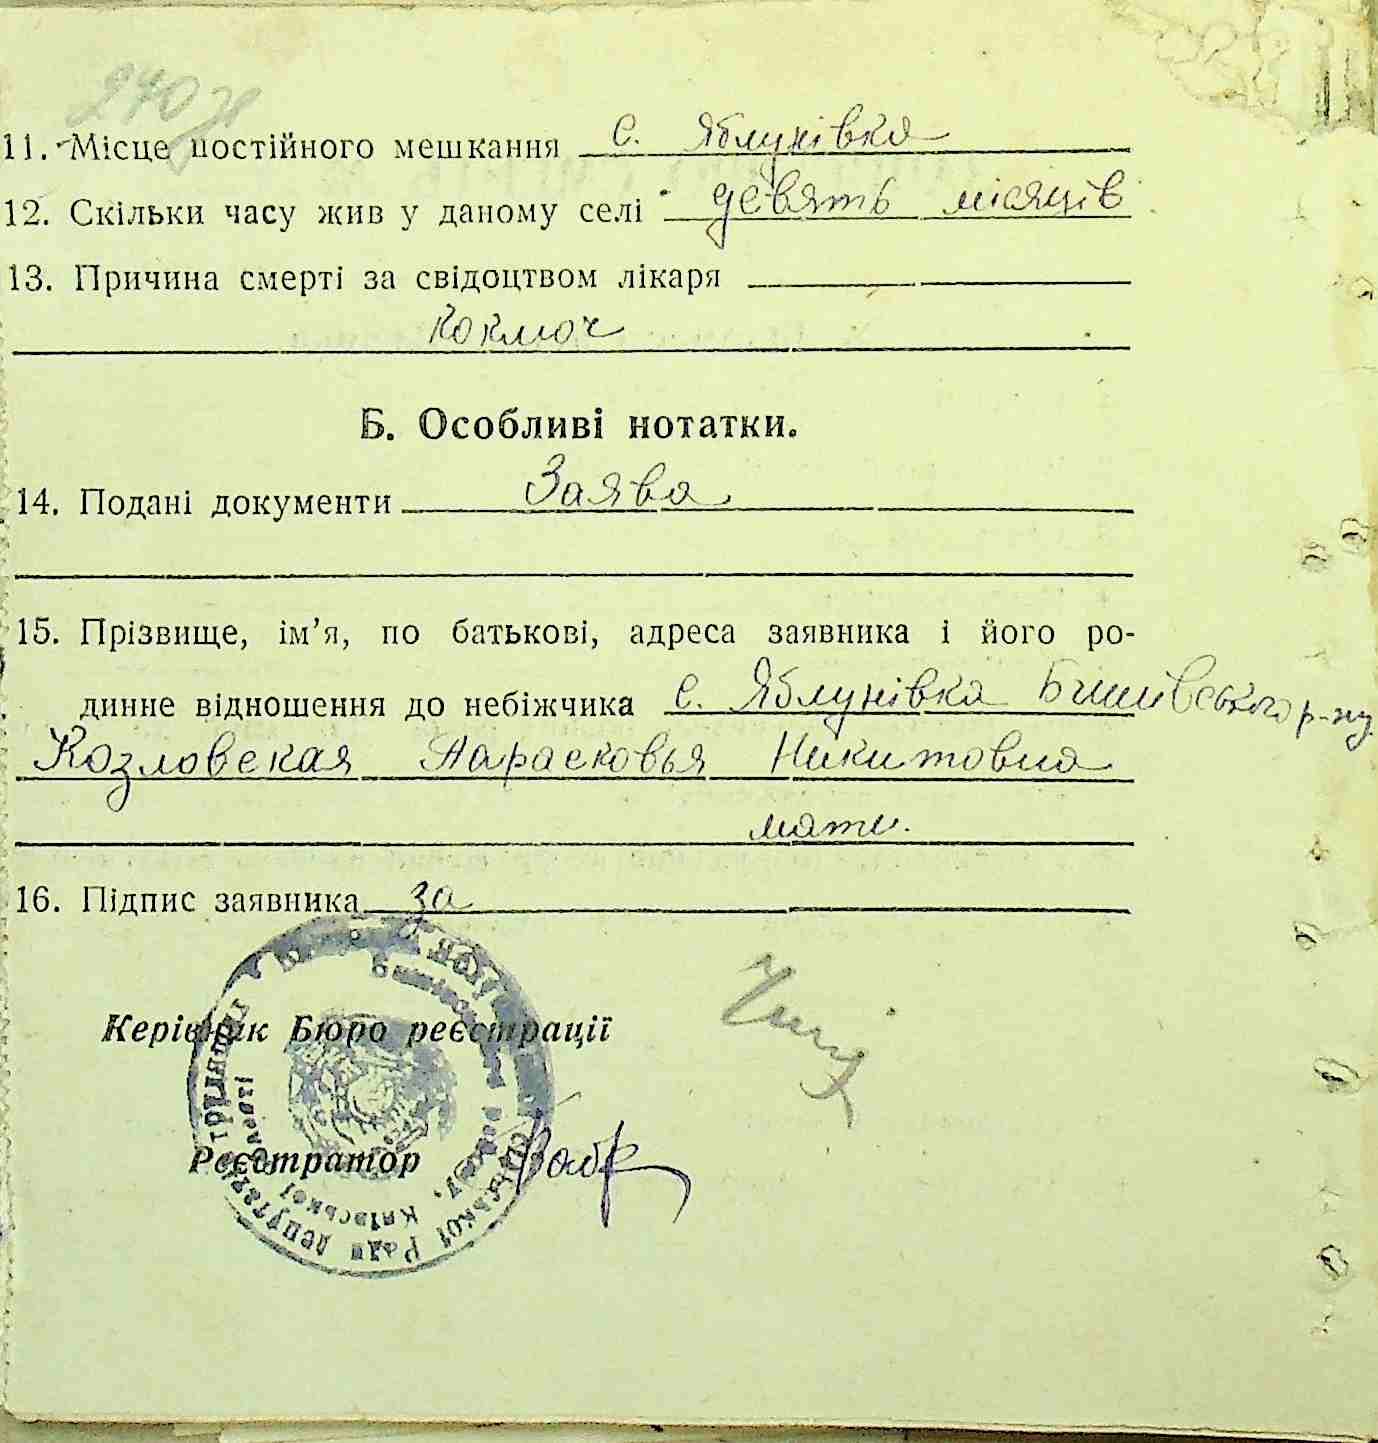 240
11. Місце постійного мешкання с. Яблунівка
12. Скільки часу жив у даному селі девять місяців
13. Причина смерті за свідоцтвом лікаря
Коключ
Б. Особливі нотатки.
14. Подані документи Заява
15. Прізвище, ім’я, по батькові, адреса заявника і його ро-
динне відношення до небіжчика с. Яблунівка Бишівського р-ну
Козловская Парасковья Никитовна
мати.
16. Підпис заявника за
Керівник Бюро реєстрації
Реєстратор
сільської Ради депутатів трудящих
району, Київської області